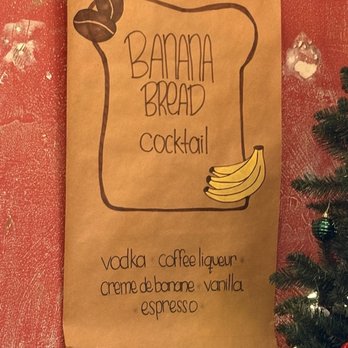 BANANA
BREAD
cocktail
vodka · coffee liqueur ·
creme de banane · vanilla
· espresso ·